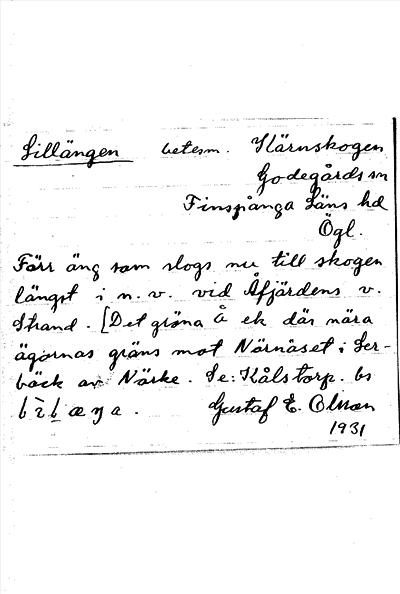 Lillängen betesm. Kärnskogen
Godegårds sn
Finspånga Läns hd
Ögl.
Förr äng som slogs nu till skogen
längst i n. v. vid Åfjärdens v.
strand. [Det gröna å ek där nära
ägornas gräns mot Närnäset i Ler-
bäck av Närke. Se: Kålstorp. bs
Gustaf E. Olsson
1931